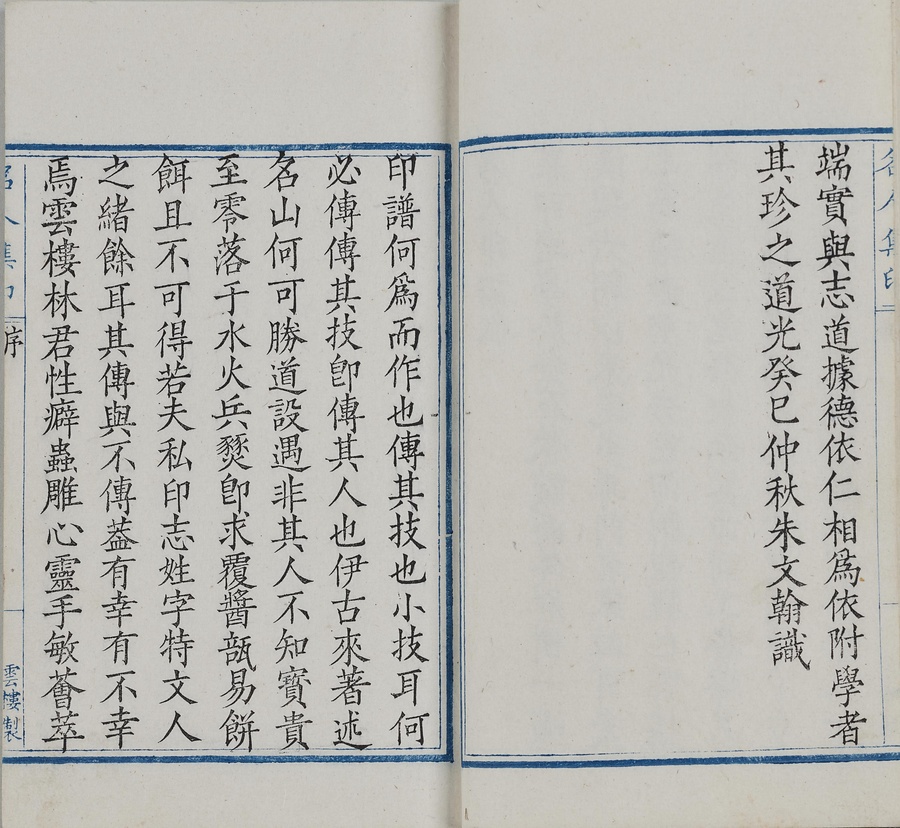 名人集印
端實與志道據德依仁相爲依附學者
其珍之道光癸巳仲秋朱文翰識
印譜何爲而作也傳其技也小技耳何
必傳傳其技卽傳其人也伊古來著述
名山何可勝道設遇非其人不知寶貴
至零落于水火兵燹卽求覆醬瓿易餅
餌且不可得若夫私印志姓字特文人
之緒餘耳其傳與不傳葢有幸有不幸
焉雲樓林君性癖蟲雕心靈手敏薈萃
名人集印
序
雲樓製